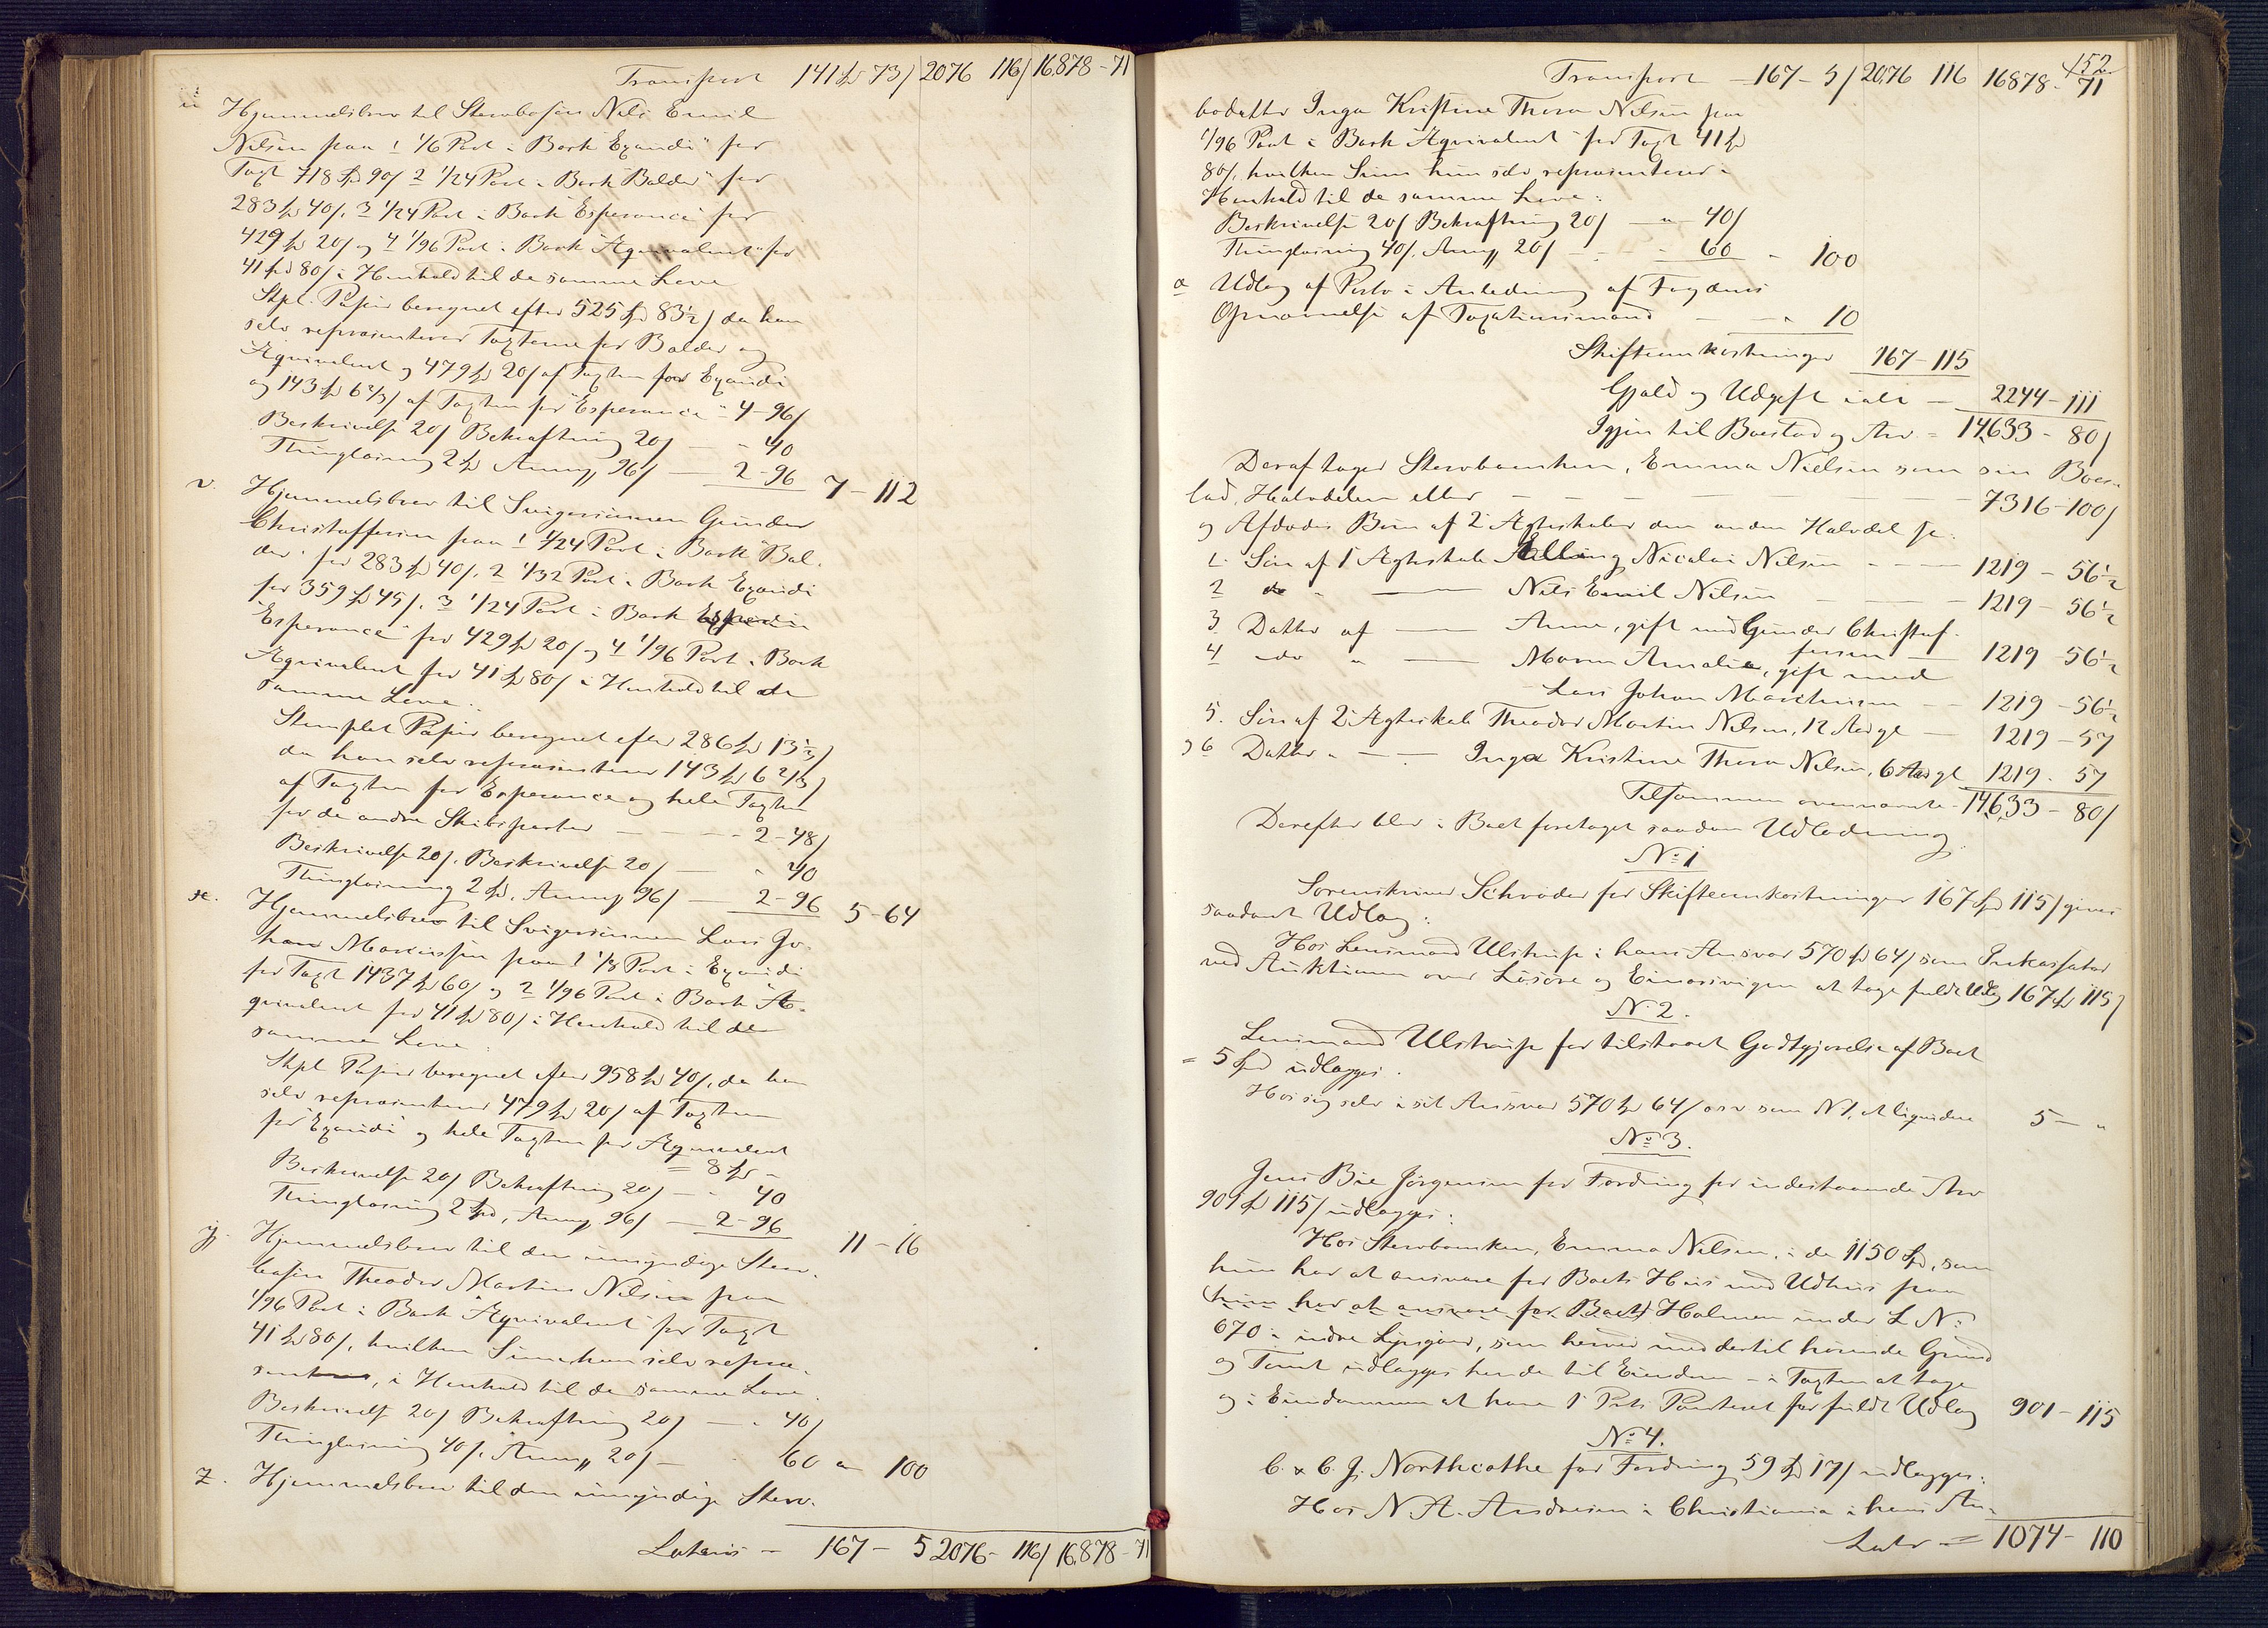 Transport 141 Spd 73 / 2076 116 / 16.878 - 71
u Hjemmelsbrev til Stervbosøn Nils Emil
Nilsen paa 1 1/16 Part i Bark "Exaudi" for
Taxt 718 Spd 90 / 2 1/24 Part i Bark "Balder" for
283 Spd 40 /, 3 1/24 Part i Bark "Esperance" for
429 Spd 20 / og 4 1/96 Part i Bark "Æquivalent" for
41 Spd 80 / i Henhold til de samme Love
Stpl. Papir beregnet efter 525 Spd 83½ / da han
selv repræsenterer Taxterne for Balder og
Æquivalent og 479 Spd 20 / af Taxten for Exaudi
og 143 Spd 6 2/3 / af Taxten for "Esperance" - 4 - 96 /
Beskrivelse 20 / Bekræftning 20 / — " 40
Thinglæsning 2 Spd Anmg 96 / — 2 - 96 7 - 112
v. Hjemmelsbrev til Svigersønnen Gunder
Christoffersen paa 1 1/24 Part i Bark "Bal-
der" for 283 Spd 40 /, 2 1/32 Part i Bark Exaudi
for 359 Spd 45 /, 3 1/24 Part i Bark
"Esperance" for 429 Spd 20 / og 4 1/96 Part i Bark
Æquivalent for 41 Spd 80 / i Henhold til de
samme Love:
Stemplet Papir beregnet efter 286 Spd 13½ /
da han selv repræsenterer 143 Spd 6 2/3 /
af Taxten for Esperance og hele Taxten
for de andre Skibsparter — 2 - 48 /
Beskrivelse 20 /. Beskrivelse 20 / — " 40
Thinglæsning 2 Spd. Anmg 96 / — 2 - 96 5 - 64
x. Hjemmelsbrev til Svigersønnen Lars Jo-
han Marcussen paa 1 1/8 Part i Exaudi
for Taxt 1437 Spd 60 / og 2 1/96 Part i Bark Æ-
quivalent for 41 Spd 80 / i Henhold til de
samme Love:
Stpl Papir beregnet efter 958 Spd 40 /, da han
selv repræsenterer 479 Spd 20 / af Taxten
for "Exaudi" og hele Taxten for Æquivalent
= 8 Spd "
Beskrivelse 20 / Bekræftning 20 / — " 40
Thinglæsning 2 Spd, Anmg 96 / — 2 - 96 11 - 16
y. Hjemmelsbrev til den umyndige Sterv-
bosøn Theodor Martin Nilsen paa
1/96 Part i Bark "Æquivalent" for Taxt
41 Spd 80 /, hvilken Sum han selv repræ-
senterer, i Henhold til de samme Love.
Beskrivelse 20 / Bekræftning 20 / — " 40 /
Thinglæsning 40 /. Anmg 20 / — 60 " 100
z. Hjemmelsbrev til den umyndige Sterv-
Lateris — 167 - 5 2076 - 116 / 16.878 - 71
152
Transport — 167 - 5 / 2076 116 16878 - 71
bodatter Inga Kristine Thora Nilsen paa
1/96 Part i Bark "Æquivalent" for Taxt 41 Spd
80 /, hvilken Sum hun selv repræsenterer i
Henhold til de samme Love:
Beskrivelse 20 / Bekræftning 20 / — " 40 /
Thinglæsning 40 /. Anmg 20 / — 60 " 100
æ Udlæg af Porto i Anledning af Fogdens
Opnævnelse af Taxationsmænd — " 10
Skifteomkostninger 167 - 115
Gjæld og Udgift ialt — 2244 - 111
Igjen til Boeslod og Arv = 14,633 - 80 /
Deraf tager Stervboenken, Emma Nielsen som sin Boes-
lod, Halvdelen eller — 7316 - 100 /
og Afdødes Børn af 2 Ægteskaber den anden Halvdel so:
1. Søn af 1 Ægteskab Elling Nicolai Nilsen — 1219 - 56½
2 do " — Nils Emil Nilsen — 1219 - 56½
3 Datter af — Anne, gift med Gunder Christof-
fersen — 1219 - 56½
4 do " — Maren Amalie, gift med
Lars Johan Marcussen — 1219 - 56½
5. Søn af 2 Ægteskab Theodor Martin Nilsen, 12 Aar gl — 1219 - 57
og 6 Datter " — Inga Kristine Thora Nilsen, 6 Aar gl 1219 - 57
Tilsammen ovennævnte - 14,633 - 80 /
Derefter blev i Boet foretaget saadan Udlodning
No 1
Sorenskriver Schrøder for Skifteomkostninger 167 Spd 115 / gives
saadant Udlæg:
Hos Lensmand Ulstrup i hans Ansvar 570 Spd 64 / som Inkassator
ved Auktionen over Løsøre og at tage fuldt Udlæg 167 Spd 115 /
No 2.
Lensmand Ulstrup for tilstaaet Godtgjørelse af Boet
= 5 Spd udlægges.
Hos sig selv i sit Ansvar 570 Spd 64 / osv som N 1, at ligvidere 5 — "
No 3.
Jens Bie Jørgensen for Fordring for indestaaende Arv
901 Spd 115 / udlægges:
Hos Stervboenken, Emma Nilsen, i de 1150 Spd, som
hun har at ansvare for Boets Huus med Udhus paa
hun har at ansvare for Boets Holmen under L No
670 i indre Lyngør, som herved med dertil hørende Grund
og Tomt udlægges hende til Eiendom - i Taxten at tage
og i Eiendommen at have 1 Prts Panteret for fuldt Udlæg 901 - 115
No 4.
C. & C. J. Northcothe for Fordring 59 Spd 17 / udlægges:
Hos N. A. Andresen i Christiania i hans An-
Latr = 1074 - 110